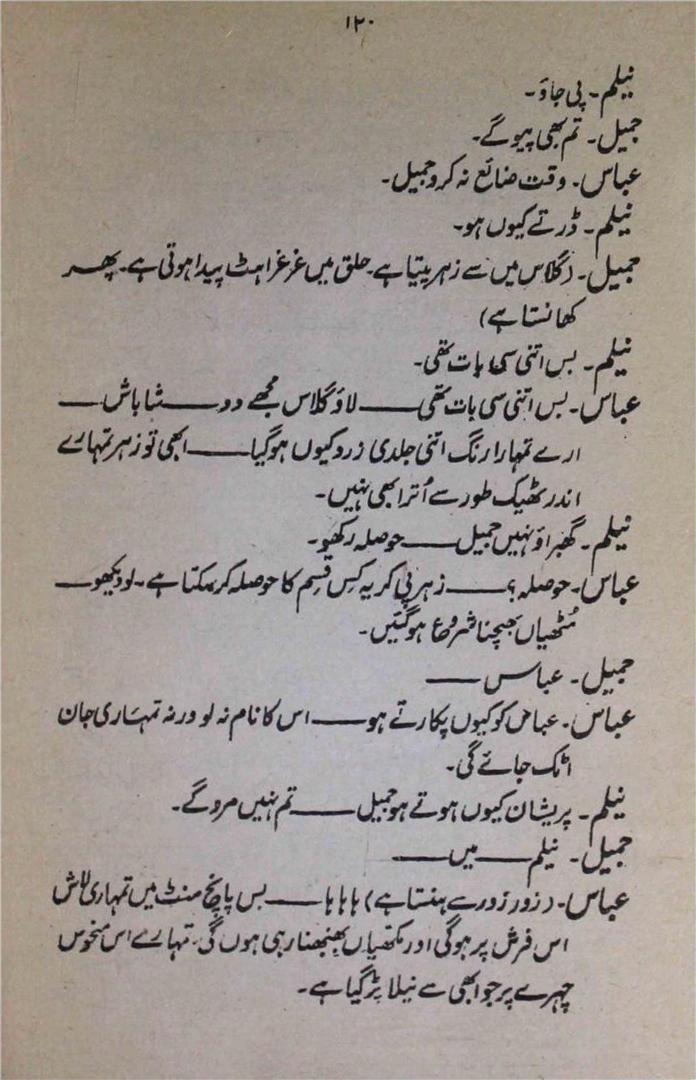 ۱۲۰
نیلم۔ پی جاؤ۔
جمیل۔ تم بھی پیو گے۔
عباس۔ وقت ضائع نہ کرو جمیل۔
نیلم۔ ڈرتے کیوں ہو۔
جمیل۔ (گلاس میں سے زہر پیتا ہے۔ حلق میں غرغراہٹ پیدا ہوتی ہے۔ پھر
کھانستا ہے)
نیلم۔ بس اتنی سی بات تھی۔
عباس۔ بس اتنی سی بات تھی ــــــ لاؤ گلاس مجھے دو ــــــ شاباش ــــــ
ارے تمہارا رنگ اتنی جلدی زرد کیوں ہوگیا ــــــ ابھی تو زہر تمہارے
اندر ٹھیک طور سے اُترا بھی نہیں۔
نیلم۔ گھبراؤ نہیں جمیل ــــــ حوصلہ رکھیو۔
عباس۔ حوصلہ؟ ــــــ زہر پی کر یہ کِس قِسم کا حوصلہ کرسکتا ہے۔ لو دیکھو ــــــ
مُٹھیاں بھیچنا شروع ہوگئیں۔
جمیل۔ عباس ــــــ
عباس۔ عباس کو کیوں پکارتے ہو ــــــ اس کا نام نہ لو ورنہ تمہاری جان
اٹک جائے گی۔
نیلم۔ پریشان کیوں ہوتے ہو جمیل ــــــ تم نہیں مروگے۔
جمیل۔ نیلم ــــــ میں ــــــ
عباس۔ (زور زور سے ہنستا ہے) ہاہاہا ــــــ بس پانچ منٹ میں تمہاری لاش
اس فرش پر ہوگی اور مکھیاں بھنبھنا رہی ہوں گی۔ تمہارے اس منحوس
چہرے پر جو ابھی سے نیلا پڑ گیا ہے۔